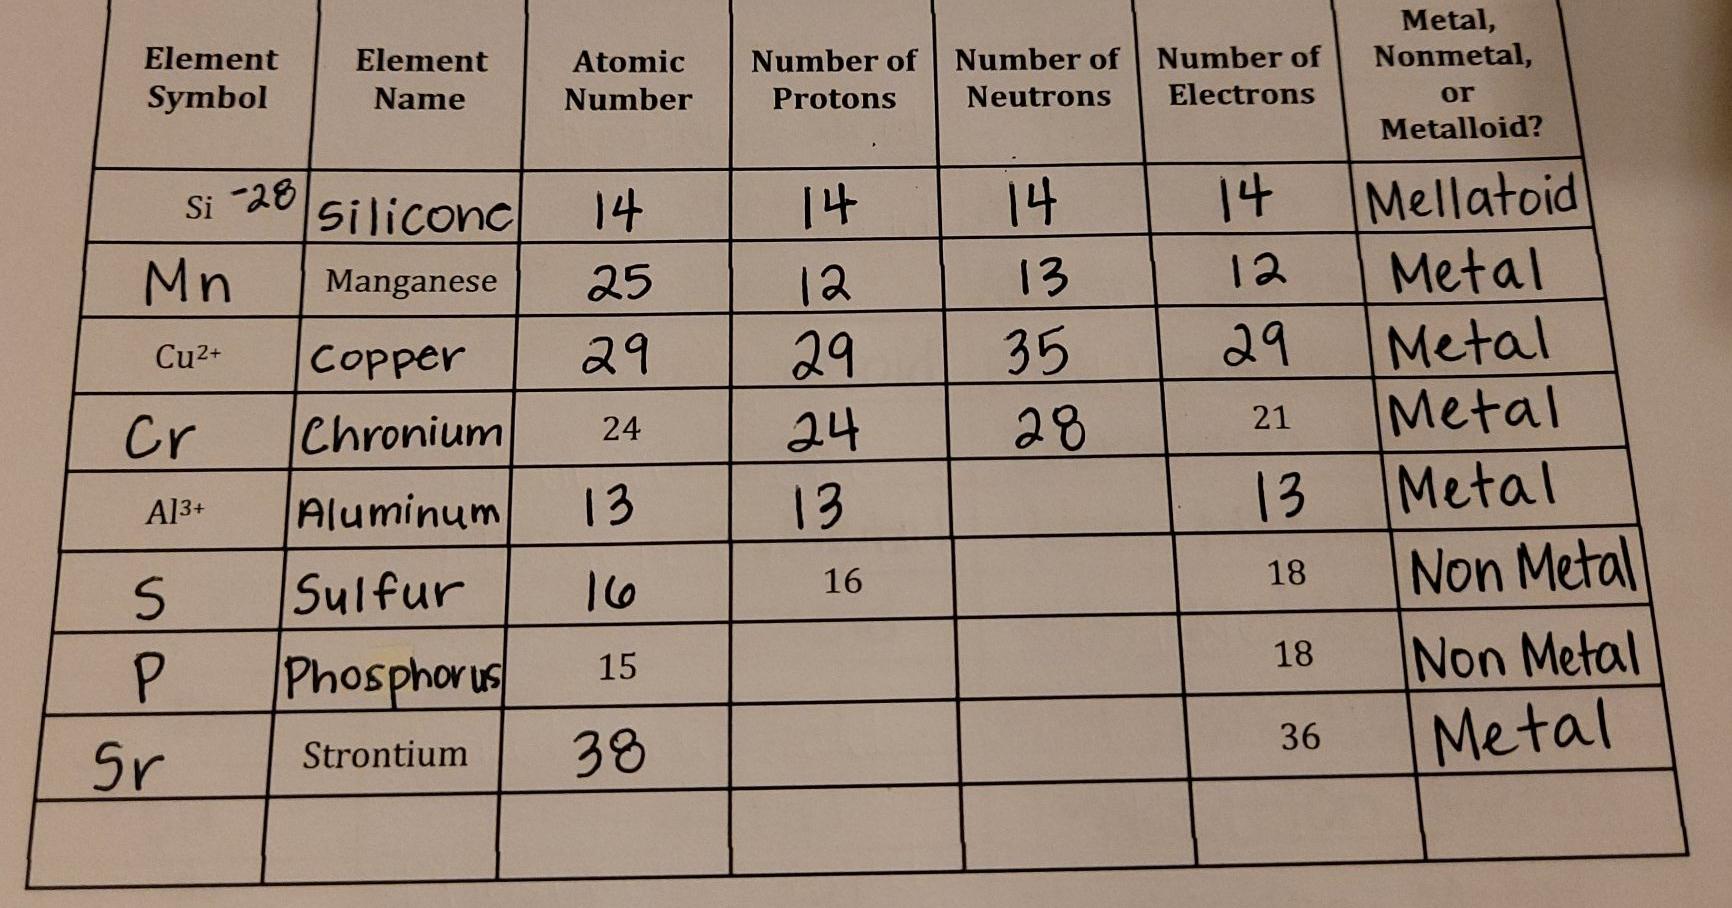 Element Symbol | Element Name | Atomic Number | Number of Protons | Number of Neutrons | Number of Electrons | Metal, Nonmetal, or Metalloid?
Si -28 | Silicone | 14 | 14 | 14 | 14 | Mellatoid
Mn | Manganese | 25 | 12 | 13 | 12 | Metal
Cu²⁺ | Copper | 29 | 29 | 35 | 29 | Metal
Cr | Chronium | 24 | 24 | 28 | 21 | Metal
Al³⁺ | Aluminum | 13 | 13 | | 13 | Metal
S | Sulfur | 16 | 16 | | 18 | Non Metal
P | Phosphorus | 15 | | | 18 | Non Metal
Sr | Strontium | 38 | | | 36 | Metal